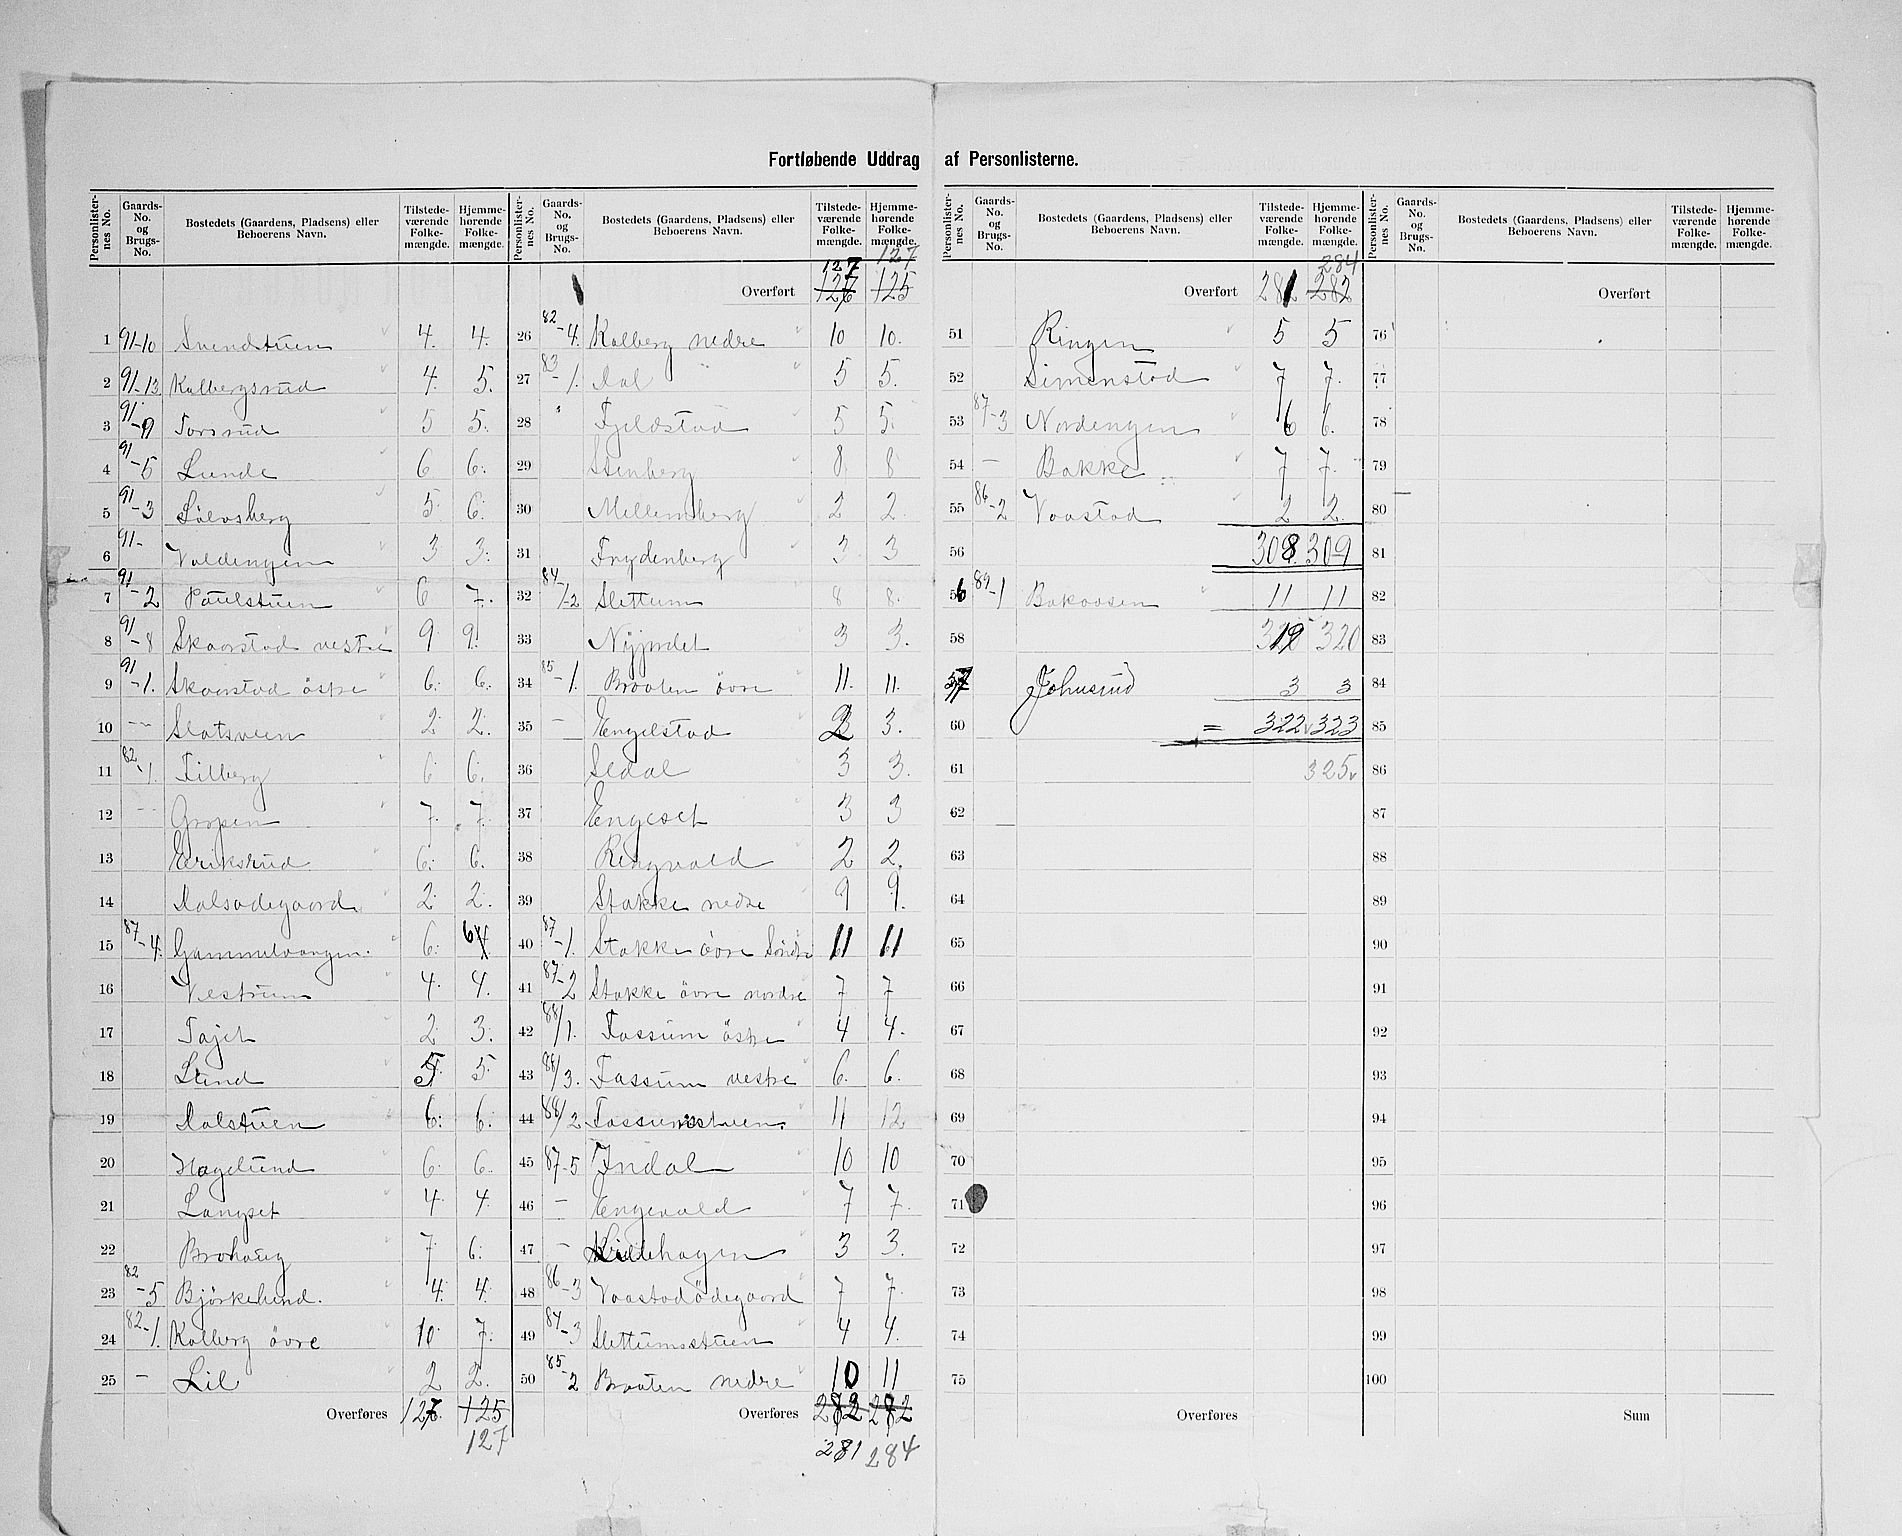 Fortløbende Uddrag af Personlisterne.
Personlisternes No. Gaards-No. og Brugs-No. Bostedets (Gaardens, Pladsens) eller Beboerens Navn. Tilstedeværende Folkemængde. Hjemmehørende Folkemængde.
1 91-10 Svendstuen 4. 4.
2 91-13 Kolbergsrud 4. 5.
3 91-9 Torsrud 5 5.
4 91-5 Lunde 6 6.
5 91-3 Sølvsberg 5. 6.
6 91- Voldengen 3 3.
7 91-2 Paulstuen 6 7.
8 91-8 Skaarstad vestre 9 9.
9 91-1. Skaarstad östre 6. 6.
10 -- Slatsveen 2. 2.
11 82-1. Filberg 6 6.
12 -- Gropen 7. 7.
13 Eriksrud 6. 6.
14 Dalsødegaard 2. 2.
15 87-4. Gammelvangen. 6. 6
16 Vestrum 4. 4.
17 Tajet 2. 3.
18 Lund 5. 5.
19 Dalstuen 6. 6.
20 Haglund 6. 6.
21 Langset 4. 4
22 Brohaug 7. 6.
23 82-5 Björkelund. 4. 4.
24 82-1. Kolberg övre 10. 7.
25 - Lil 2 2.
Overføres 127. 125
127
Personlisternes No. Gaards-No. og Brugs-No. Bostedets (Gaardens, Pladsens) eller Beboerens Navn. Tilstedeværende Folkemængde. Hjemmehørende Folkemængde.
127 127
Overført 126 125
26 82-4. Kolberg nedre 10 10.
27 83-1. Dal 5 5.
28 " Fjeldstad 5 5.
29 Stenberg 8 8
30 Mellemberg 2 2
31 Frydenberg 3. 3
32 84/1-2 Slettum 8 8.
33 Nyjordet 3 3.
34 85-1. Braaten övre 11. 11.
35 - Engelstad 2 3.
36 Sedal 3 3.
37 Engeset 3 3
38 Ringvold 2 2.
39 Stakke nedre 9 9.
40 87-1. Stakke övre Söndre 11 11
41 87-2 Stakke övre nordre 7 7
42 88/1. Fossum östre 4 4.
43 88/3. Fossum vestre 6. 6.
44 88/2 Fossumsstuen. 11 12
45 87-5 Indal 10 10
46 - Engevold 7 7.
47 - Lillehagen 3 3.
48 86-3 Vaastadödegaard 7 7.
49 84-3 Slettumsstuen 4 4.
50 85-2 Braaten nedre 10 11
Overføres 282 282
281 284
Personlisternes No. Gaards-No. og Brugs-No. Bostedets (Gaardens, Pladsens) eller Beboerens Navn. Tilstedeværende Folkemængde. Hjemmehørende Folkemængde.
284
Overført 281 282
51 Ringen 5 5
52 Simenstad 7 7.
53 87-3 Nordengen 6 6.
54 - Bakke 7 7.
55 86-2 Vaastad 2 2
56 308. 309
56 89-1 Bakaasen 11 11
58 319 320
57 Johnsrud 3 3
60 = 322 323
61 325
62
63
64
65
66
67
68
69
70
71
72
73
74
75
Overføres
Personlisternes No. Gaards-No. og Brugs-No. Bostedets (Gaardens, Pladsens) eller Beboerens Navn. Tilstedeværende Folkemængde. Hjemmehørende Folkemængde.
Overført
76
77
78
79
80
81
82
83
84
85
86
87
88
89
90
91
92
93
94
95
96
97
98
99
100
Sum